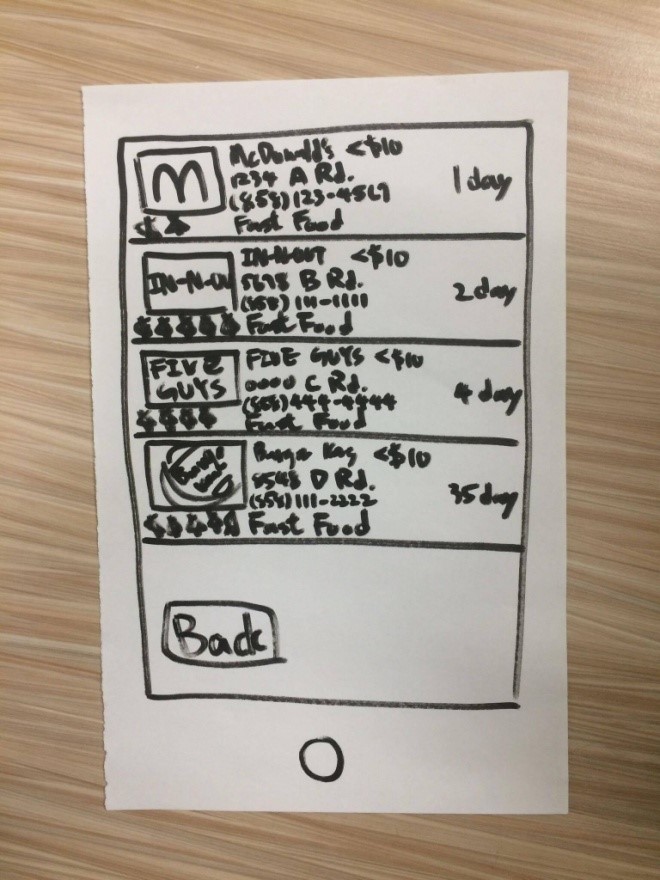 M
McDonald's <$10
1234 A Rd.
(858)123-4567
Fast Food
1 day
IN-N-OUT
IN-N-OUT <$10
5678 B Rd.
(858)111-1111
Fast Food
2 day
FIVE
GUYS
FIVE GUYS <$10
0000 C Rd.
(858)444-4444
Fast Food
4 day
Burger
King
Burger King <$10
8548 D Rd.
(858)111-2222
Fast Food
35 day
Back